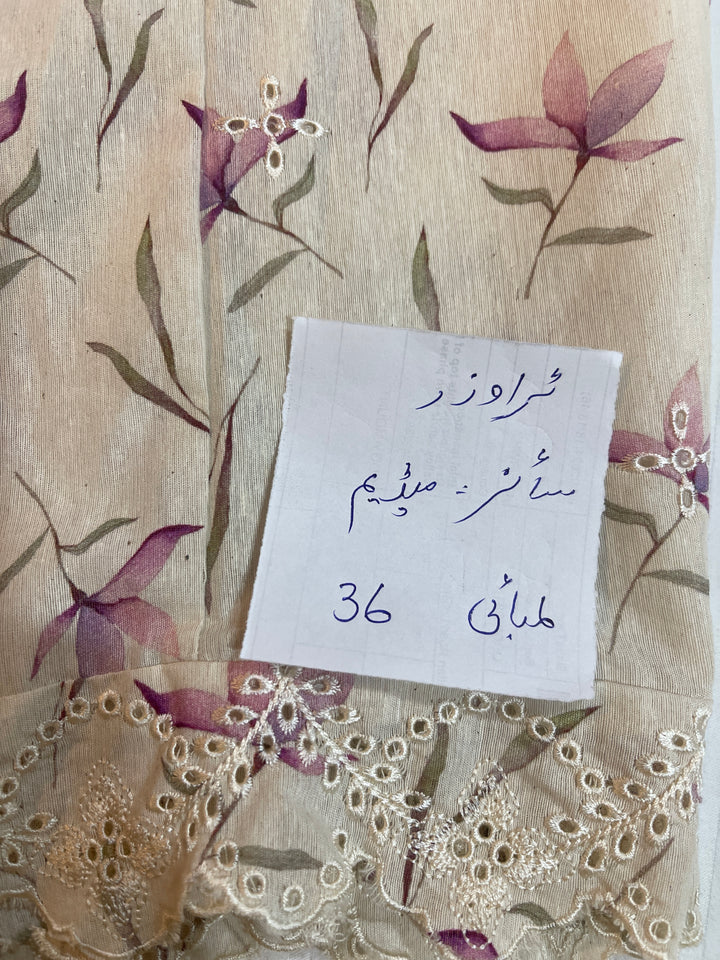 ٹراوزر
سائز : میڈیم
لمبائی 36